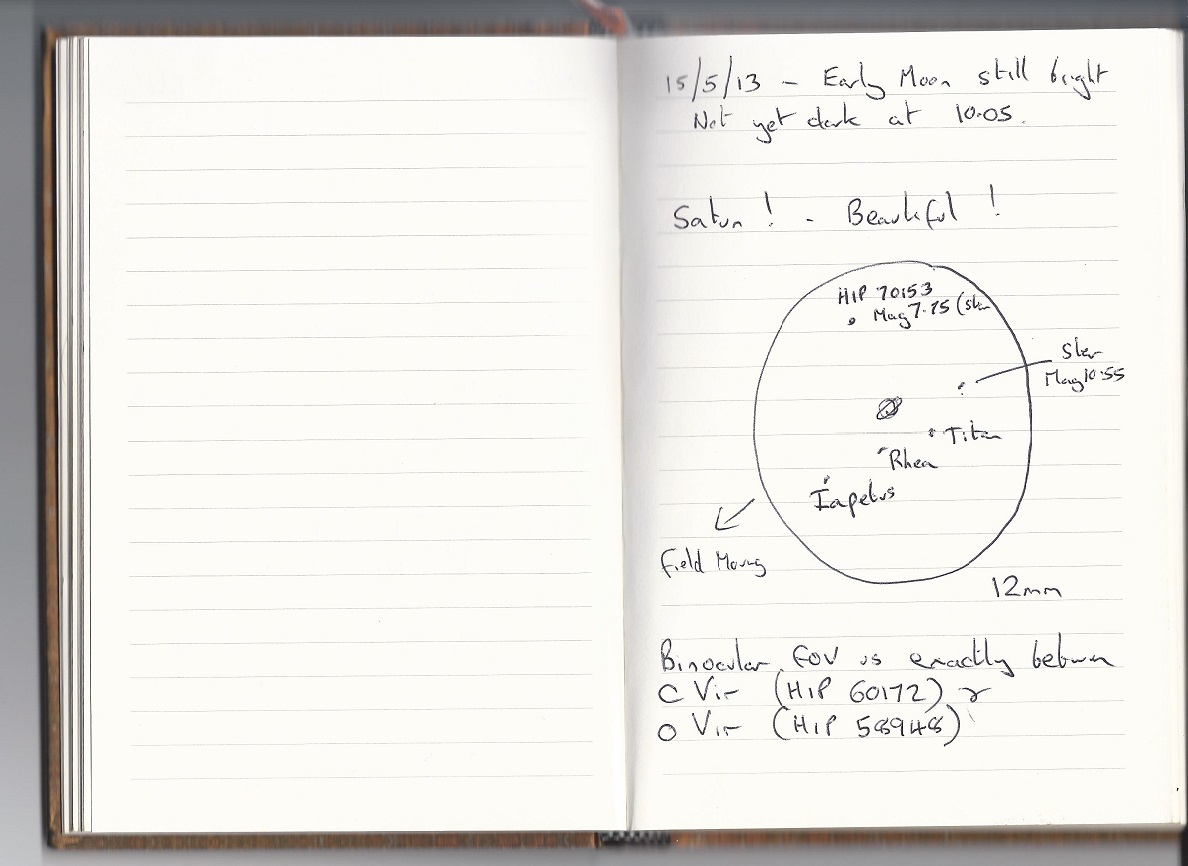 15/5/13 - Early Moon still bright
Not yet dark at 10.05.
Saturn! - Beautiful!
HIP 70153
Mag 7.75 (star
Star
Mag 10.55
Titan
Rhea
Iapetus
Field Moving
12mm
Binocular FOV is exactly between
C Vir (HIP 60172) &
O Vir (HIP 58948)